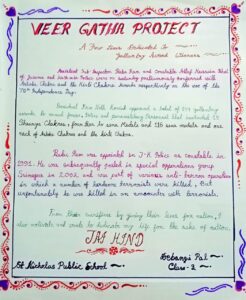 VEER GATHA PROJECT
A Few Lines Dedicated to
Gallantry Award Winners
Assistant Sub Inspector Babu Ram and Constable Altaf Hussain Bhat
of Jammu and Kashmir Police were in
Ashoka Chakra and the Kirti Chakra Awards respectively on the eve of the
76th Independence Day.
President Ram Nath Kovind approved a total of 144 gallantry
awards to armed forces, Police and Paramilitary Personnel that included 15
Shaurya Chakras, four Bar to Sena Medals and 116 sena medals and one
each of Ashoka Chakra and the Kirti Chakra.
Babu Ram was appointed in J-K Police as constable in
1999. He was subsequently posted in special operations group,
Srinagar in 2002, and was part of various anti-terror operation
in which a number of hardcore terrorists were killed. But
unfortunately he was killed in an encounter with terrorists.
From their sacrifices by giving their lives for nation, I
also motivate and wants to dedicate my life for the sake of nation.
JAI HIND
St Nicholas Public School
Debangi Pal
Class-2